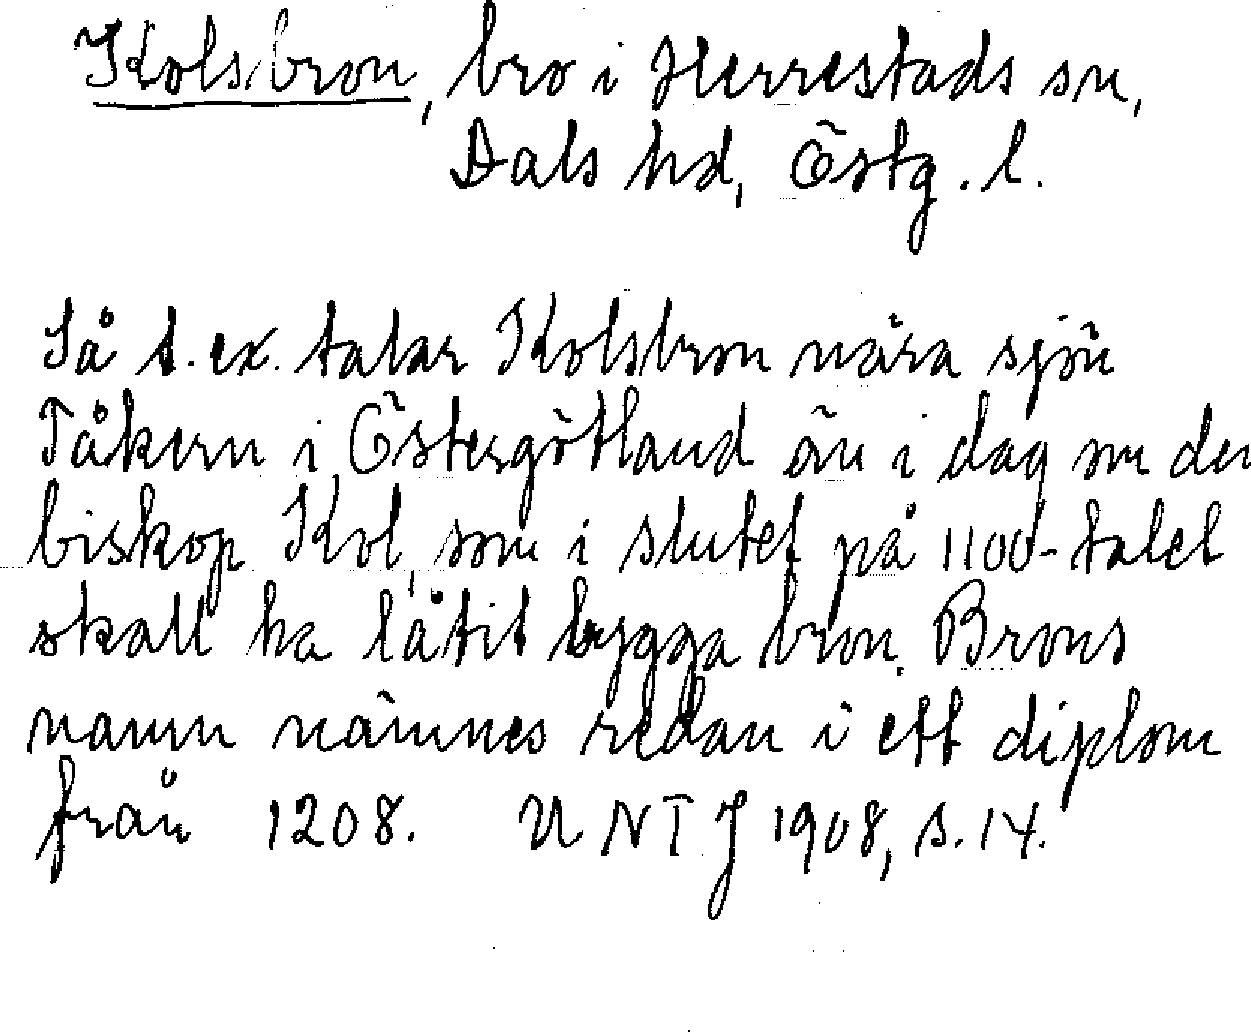 Kolsbron, bro i Herrestads sn,
Dals hd, Östg. l.
Så t.ex. talar Kolsbron nära sjön
Tåkern i Östergötland än i dag om den
biskop Kol, som i slutet på 1100-talet
skall ha låtit bygga bron. Brons
namn nämnes redan i ett diplom
från 1208. UNTJ 1908, s. 14.